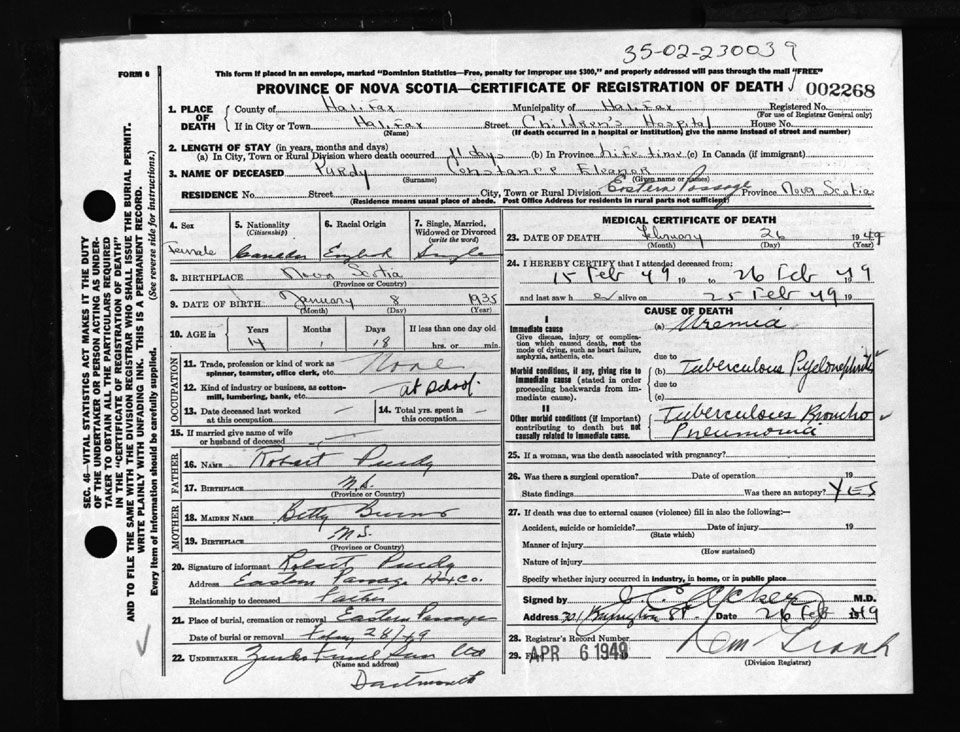 35-02-230039
FORM 6
This form if placed in an envelope, marked "Dominion Statistics—Free, penalty for improper use $300," and properly addressed will pass through the mail "FREE"
PROVINCE OF NOVA SCOTIA—CERTIFICATE OF REGISTRATION OF DEATH 002268
1. PLACE OF DEATH County of Halifax Municipality of Halifax Registered No.
(For use of Registrar General only)
If in City or Town Halifax Street Children's Hospital House No.
(Name) (If death occurred in a hospital or institution) give the name instead of street and number)
2. LENGTH OF STAY (in years, months and days)
(a) In City, Town or Rural Division where death occurred 11 days (b) In Province life time (c) In Canada (if immigrant)
3. NAME OF DECEASED Purdy Constance Eleanor
(Surname) (Given name or names)
RESIDENCE No. Street City, Town or Rural Division Eastern Passage Province Nova Scotia
(Residence means usual place of abode. Post Office Address for residents in rural parts not sufficient)
4. Sex Female
5. Nationality (Citizenship) Canadian
6. Racial Origin English
7. Single, Married, Widowed or Divorced (write the word) Single
8. BIRTHPLACE Nova Scotia
(Province or Country)
9. DATE OF BIRTH January 8 1935
(Month) (Day) (Year)
10. AGE in Years Months Days If less than one day old
14 1 18 hrs. or min.
OCCUPATION
11. Trade, profession or kind of work as spinner, teamster, office clerk, etc. None
12. Kind of industry or business, as cotton-mill, lumbering, bank, etc. at school.
13. Date deceased last worked at this occupation —
14. Total yrs. spent in this occupation —
15. If married give name of wife or husband of deceased —
FATHER
16. NAME Robert Purdy
17. BIRTHPLACE N.S.
(Province or Country)
MOTHER
18. MAIDEN NAME Betty Burns
19. BIRTHPLACE N.S.
(Province or Country)
20. Signature of informant Robert Purdy
Address Eastern Passage Hfx Co.
Relationship to deceased Father
21. Place of burial, cremation or removal Eastern Passage
Date of burial or removal Feby 28/49
22. UNDERTAKER Zinks Funeral Ltd
(Name and address)
Dartmouth
MEDICAL CERTIFICATE OF DEATH
23. DATE OF DEATH February 26 1949
(Month) (Day) (Year)
24. I HEREBY CERTIFY that I attended deceased from:
15 Feb 49 19 to 26 Feb 49 19
and last saw h er alive on 25 Feb 49 19
CAUSE OF DEATH
I
Immediate cause
Give disease, injury or complication which caused death, not the mode of dying, such as heart failure, asphyxia, asthenia, etc.
(a) Uremia
due to
Morbid conditions, if any, giving rise to immediate cause (stated in order proceeding backwards from immediate cause).
(b) Tuberculous Pyelonephritis
due to
(c)
II
Other morbid conditions (if important) contributing to death but not causally related to immediate cause.
Tuberculous Broncho
Pneumonia
25. If a woman, was the death associated with pregnancy?
26. Was there a surgical operation? Date of operation 19
State findings Was there an autopsy? YES
27. If death was due to external causes (violence) fill in also the following:
Accident, suicide or homicide? Date of injury 19
(State which)
Manner of injury
(How sustained)
Nature of injury
Specify whether injury occurred in industry, in home, or in public place
Signed by M.D.
Address 301 Barrington St. Date 26 Feb 1949
28. Registrar's Record Number
29. APR 6 1949
(Division Registrar)
SEC. 46—VITAL STATISTICS ACT MAKES IT THE DUTY
OF THE UNDERTAKER OR PERSON ACTING AS UNDER-
TAKER TO OBTAIN ALL THE PARTICULARS REQUIRED
IN THE "CERTIFICATE OF REGISTRATION OF DEATH"
AND TO FILE THE SAME WITH THE DIVISION REGISTRAR WHO SHALL ISSUE THE BURIAL PERMIT.
WRITE PLAINLY WITH UNFADING INK. THIS IS A PERMANENT RECORD.
Every item of information should be carefully supplied. (See reverse side for instructions.)